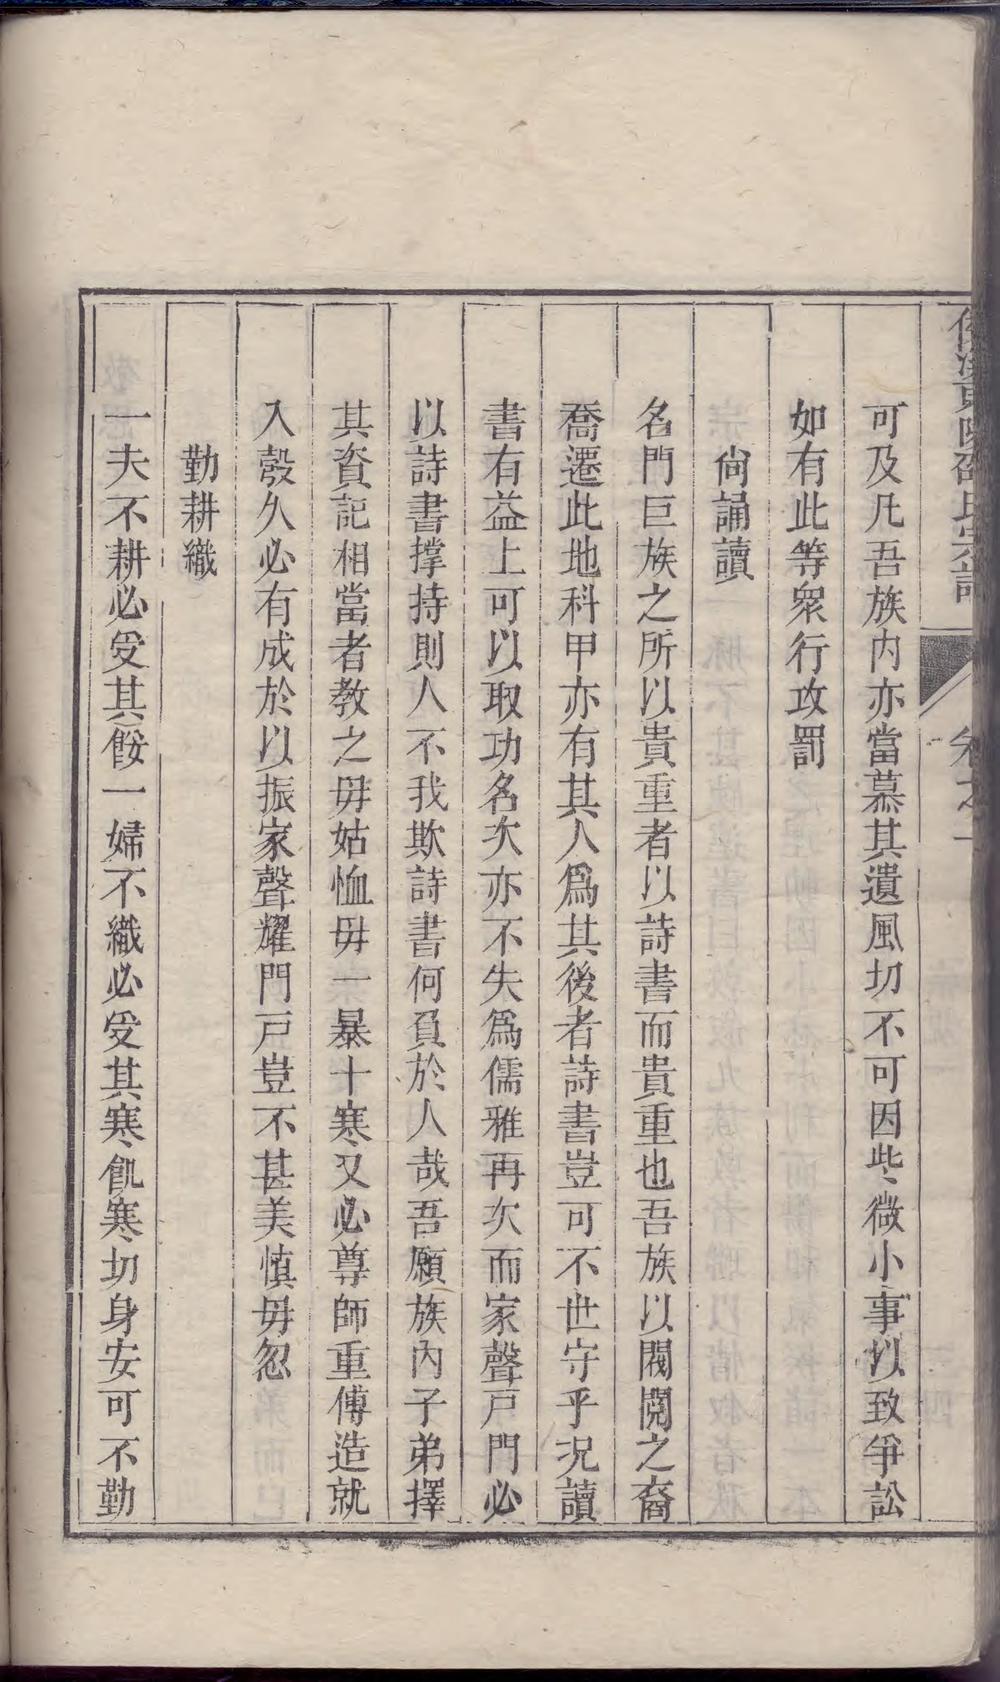 邵氏宗譜
卷之一
可及凡吾族內亦當慕其遺風切不可因些微小事以致爭訟
如有此等眾行攻罰
尙誦讀
名門巨族之所以貴重者以詩書而貴重也吾族以閥閱之裔
喬遷此地科甲亦有其人爲其後者詩書豈可不世守乎况讀
書有益上可以取功名次亦不失爲儒雅再次而家聲戶門必
以詩書撑持則人不我欺詩書何負於人哉吾願族內子弟擇
其資記相當者教之毋姑恤毋一暴十寒又必尊師重傅造就
入彀久必有成於以振家聲耀門戶豈不甚美愼毋忽
勤耕織
一夫不耕必受其餒一婦不織必受其寒飢寒切身安可不勤